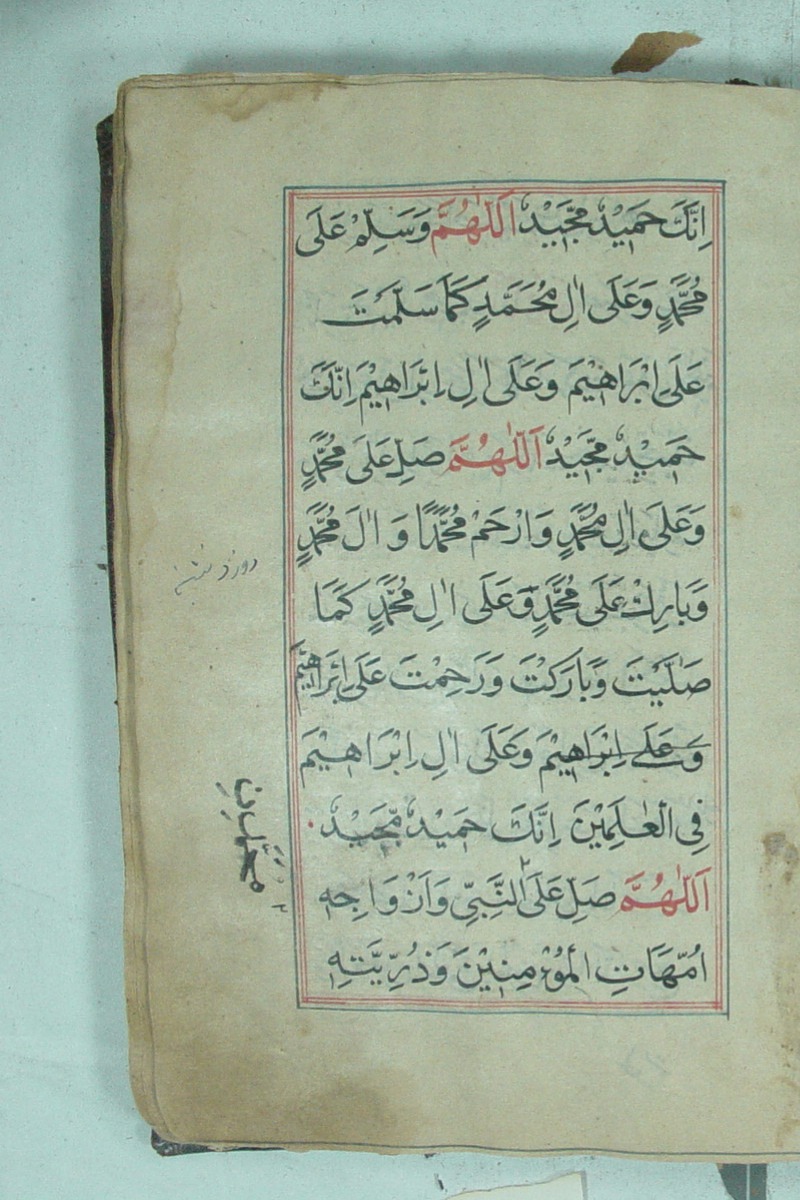 اِنَّكَ حَمِيْدٌ مَّجِيْدٌ اَللّٰهُمَّ وَسَلِّمْ عَلَى
مُحَمَّدٍ وَعَلَى اٰلِ مُحَمَّدٍ كَمَا سَلَّمْتَ
عَلَى اِبْرَاهِيْمَ وَعَلَى اٰلِ اِبْرَاهِيْمَ اِنَّكَ
حَمِيْدٌ مَّجِيْدٌ اَللّٰهُمَّ صَلِّ عَلَى مُحَمَّدٍ
وَعَلَى اٰلِ مُحَمَّدٍ وَارْحَمْ مُحَمَّدًا وَ اٰلَ مُحَمَّدٍ
وَبَارِكْ عَلَى مُحَمَّدٍ وَّعَلَى اٰلِ مُحَمَّدٍ كَمَا
صَلَّيْتَ وَبَارَكْتَ وَرَحِمْتَ عَلَى اِبْرَاهِيْمَ
وَعَلَى اِبْرَاهِيْمَ وَعَلَى اٰلِ اِبْرَاهِيْمَ
فِي الْعٰلَمِيْنَ اِنَّكَ حَمِيْدٌ مَّجِيْدٌ
اَللّٰهُمَّ صَلِّ عَلَى النَّبِيِّ وَاَزْوَاجِهِ
اُمَّهَاتِ الْمُؤْمِنِيْنَ وَذُرِّيَّتِهِ